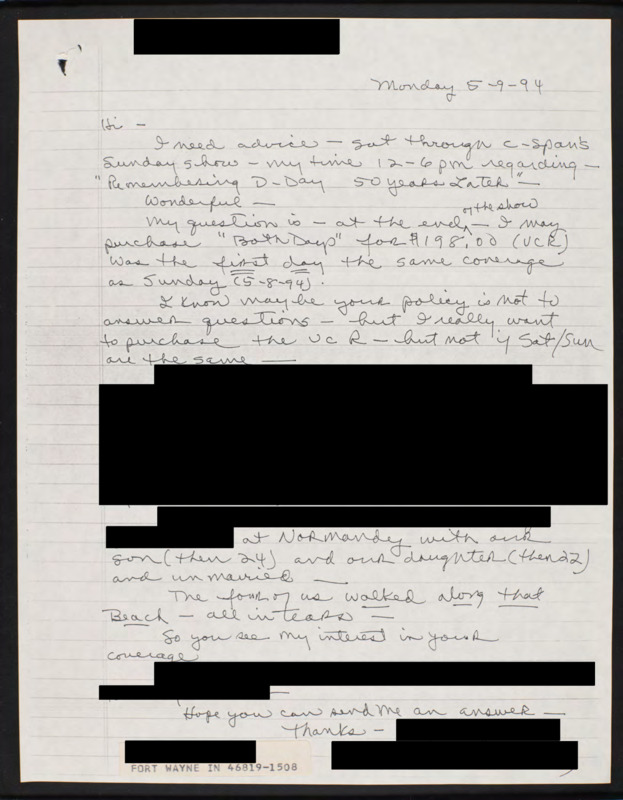 Monday 5-9-94
Hi -
I need advice - sat through C-Span's
Sunday show - my time 12-6 pm regarding -
"Remembering D-Day 50 years Later" -
Wonderful -
of the show
My question is - at the end, - I may
purchase "Both Days" for $198.00 (VCR)
Was the first day the same coverage
as Sunday (5-8-94).
I know maybe your policy is not to
answer questions - but I really want
to purchase the VCR - but not if Sat/Sun
are the same -
at Normandy with our
son (then 24) and our daughter (then 22)
and unmarried -
The four of us walked along that
Beach - all in tears -
So you see my interest in your
coverage
Hope you can send me an answer -
Thanks -
FORT WAYNE IN 46819-1508